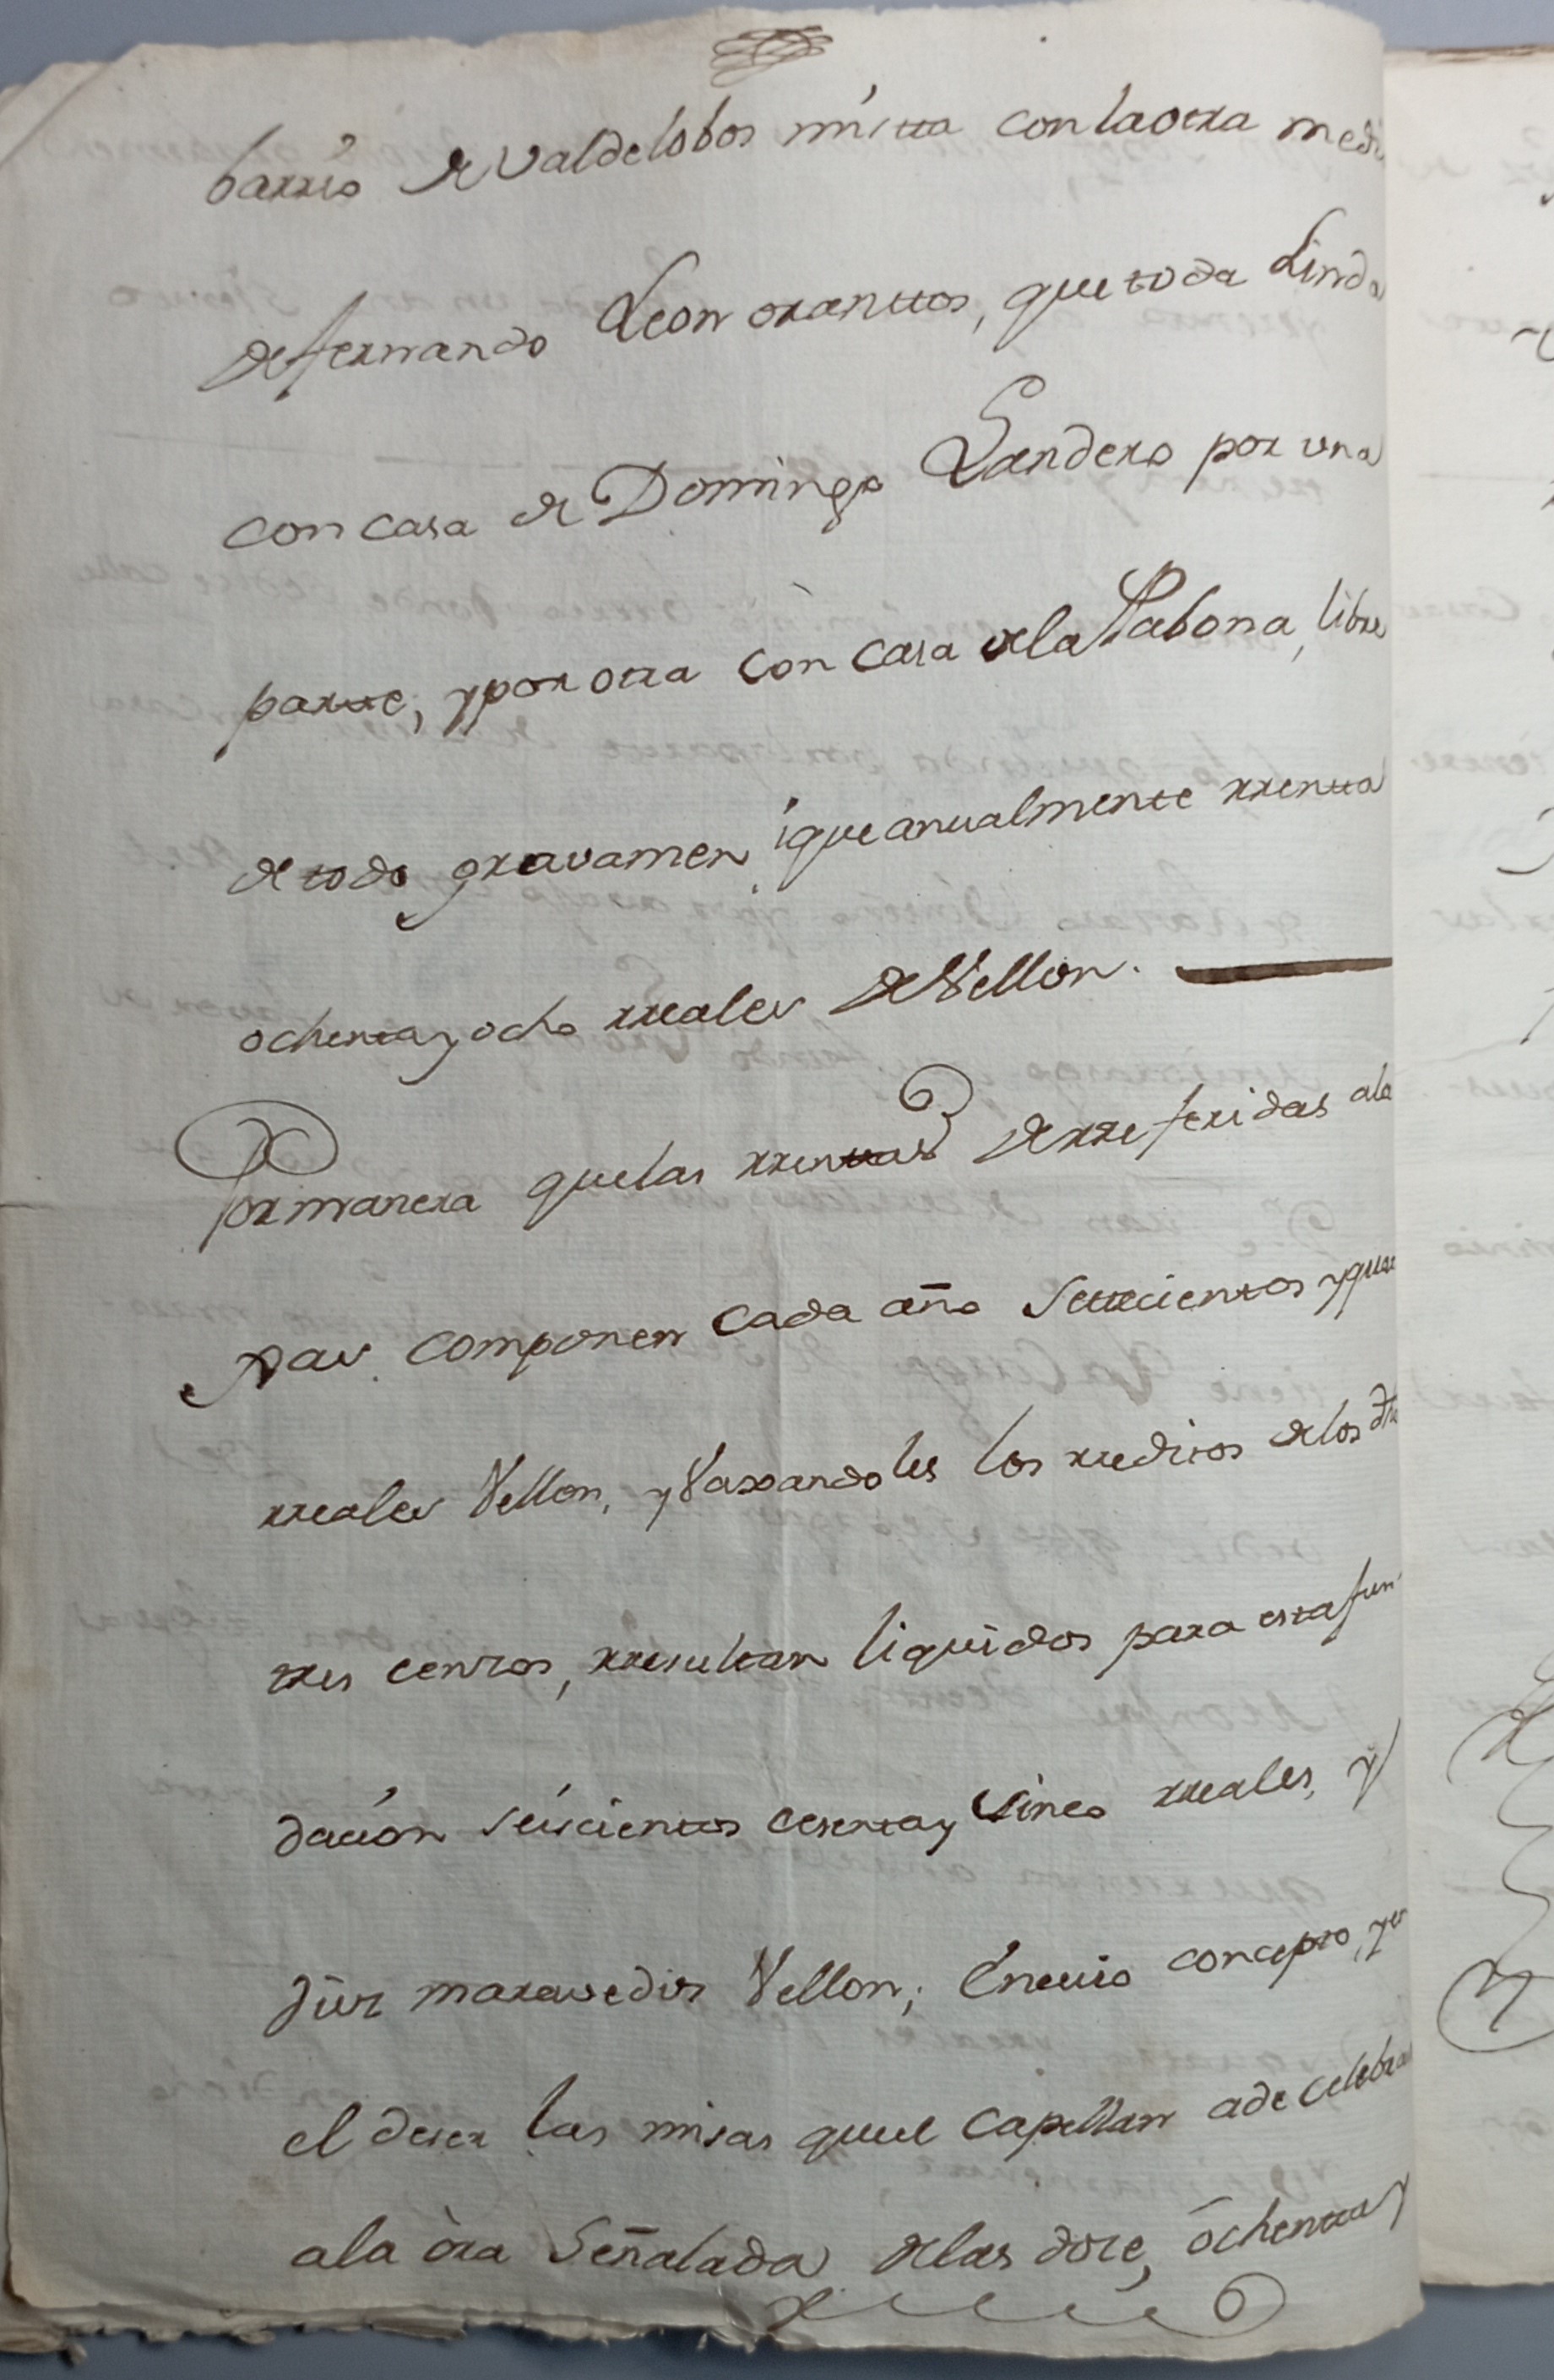 barrio de Valdelobos mitta con la otra medi
de fernando Leon oranttos, que toda Linda
con casa de Domingo Landero por una
partte, y por otra con casa de la Pabona, libre
de todo gravamen, i que anualmente rrentta
ochenta y ocho rreales de Vellon.
Por manera que las rrenttas de rreferidas ala
jas componen cada año Settecientos y quar
rreales Vellon, y Vaxandoles los rreditos de los dhos
tres censos, rresultan liquidos para esta fun
dacion seiscientos cesenta y Sinco rreales, y
diez maravedis Vellon; En cuio concepto, y en
el deser las misas que el Capellan a de celebrar
a la ora Señalada de las doze, ochentta y